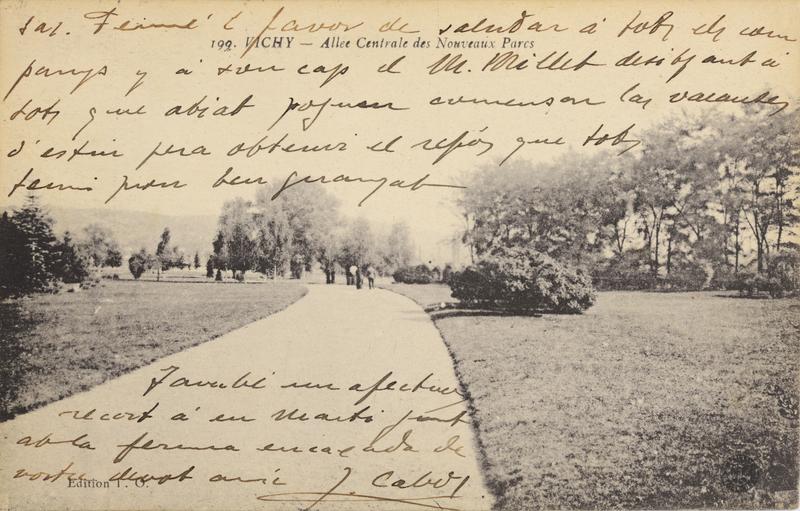 sas. Feume l favor de saludar á tots els com
199. VICHY — Allée Centrale des Nouveaux Parcs
panys y á son cap el M. Millet desitjant á
tots que aviat poguen comensar las vacantes
d'estiu pera obtenir el repós que tots
tenim prou ben guanyat
Tambè un afectuos
recort á en Martí junt
ab la ferma encaxada de
vostre devot amic J. Cabot
Edition T. O.